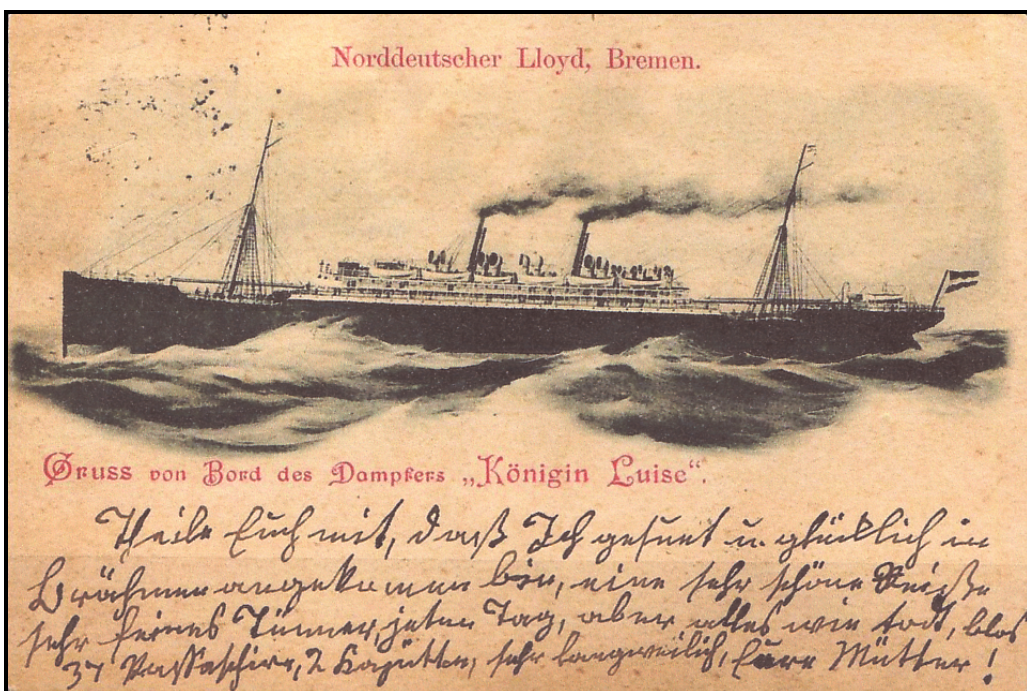 Norddeutscher Lloyd, Bremen.
Gruss von Bord des Dampfers „Königin Luise“.
Theile Euch mit, daß Ich gesunt u. glücklich in
Brähmen angekommen bin, eine sehr schöne Reiße
sehr feines Tinner, jeten Tag, aber alles wie todt, blos
37 Passaschire, 2 Kajütten, sehr langweilich, Eure Mutter!